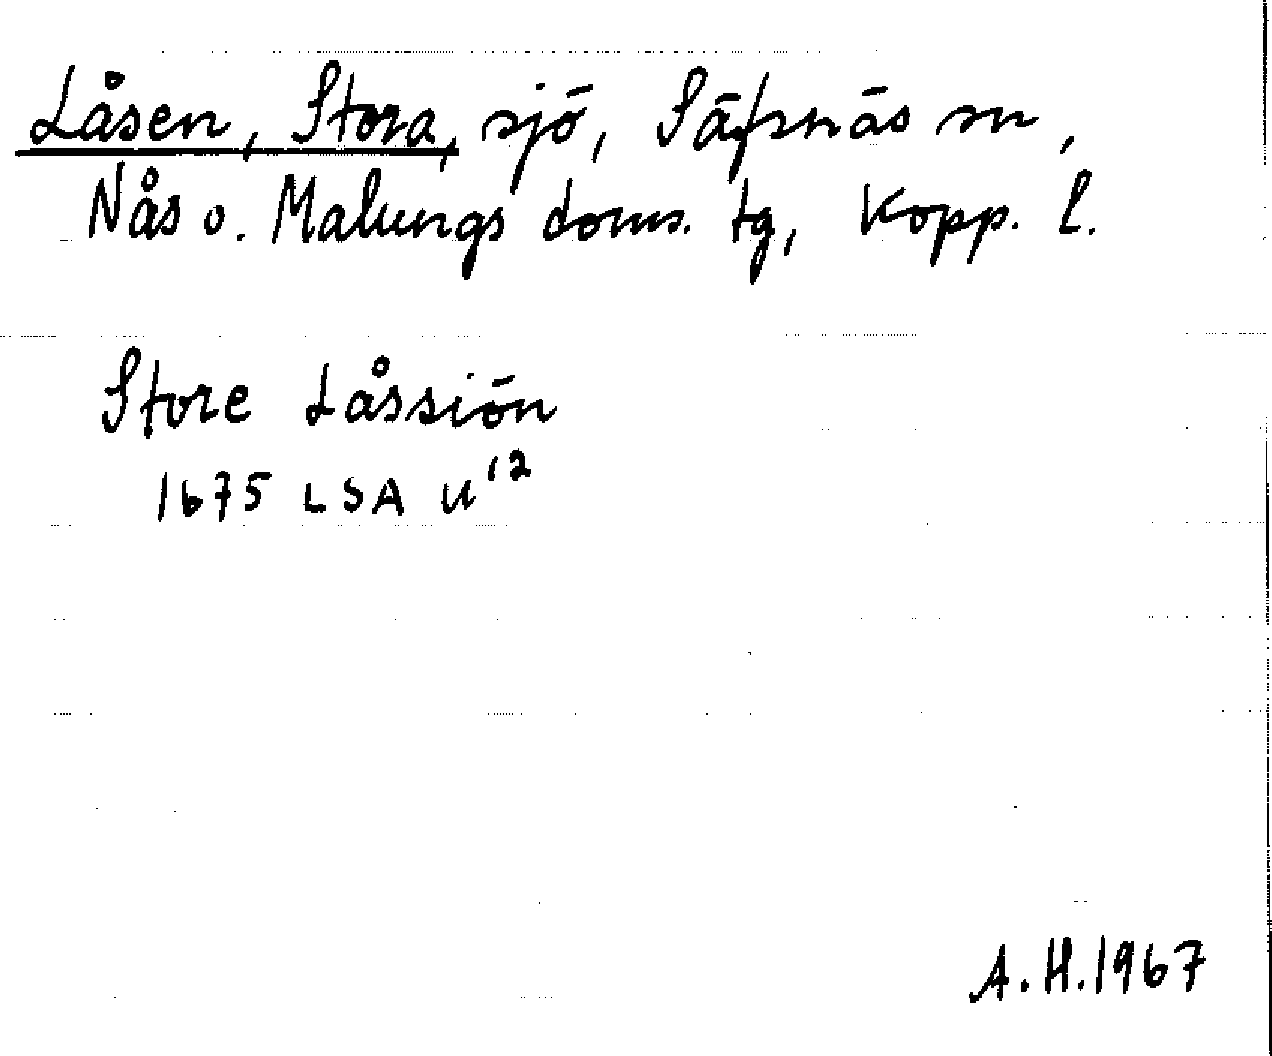 Låsen, Stora, sjö, Säfsnäs sn,
Nås o. Malungs doms. tg, Kopp. l.
Store Låssiön
1675 LSA U¹²
A.H.1967